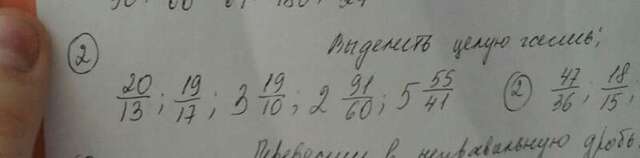 ② Выделить целую часть;
20/13; 19/17; 3 19/10; 2 91/60; 5 55/41 ② 47/36; 18/15;
Перевести в неправильную дробь